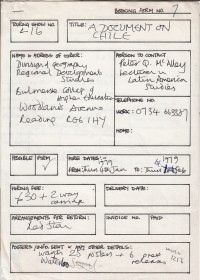 BOOKING FORM NO. 7
TOURING SHOW NO.
L-16
TITLE:
A DOCUMENT ON
CHILE
NAME & ADDRESS OF HIRER:
Division of Geography
Regional Development
Studies
Bulmershe College of
Higher Education
Woodlands Avenue
Reading RG6 1HY
PERSON TO CONTACT
Peter Q. McAlley
Lecturer in
Latin America
Studies
TELEPHONE NO.
WORK: 0734 663387
HOME:
POSSIBLE
FIRM
HIRE DATES:
1979
FROM: Thurs 4th Jan TO: Feb
1979
HIRING FEE:
£30 + 2 way
carriage
DELIVERY DATE:
ARRANGEMENTS FOR RETURN:
Red Star
INVOICE NO.
PAID
POSTERS/INFO SENT & ANY OTHER DETAILS:
wants 25 posters + 6 press
releases